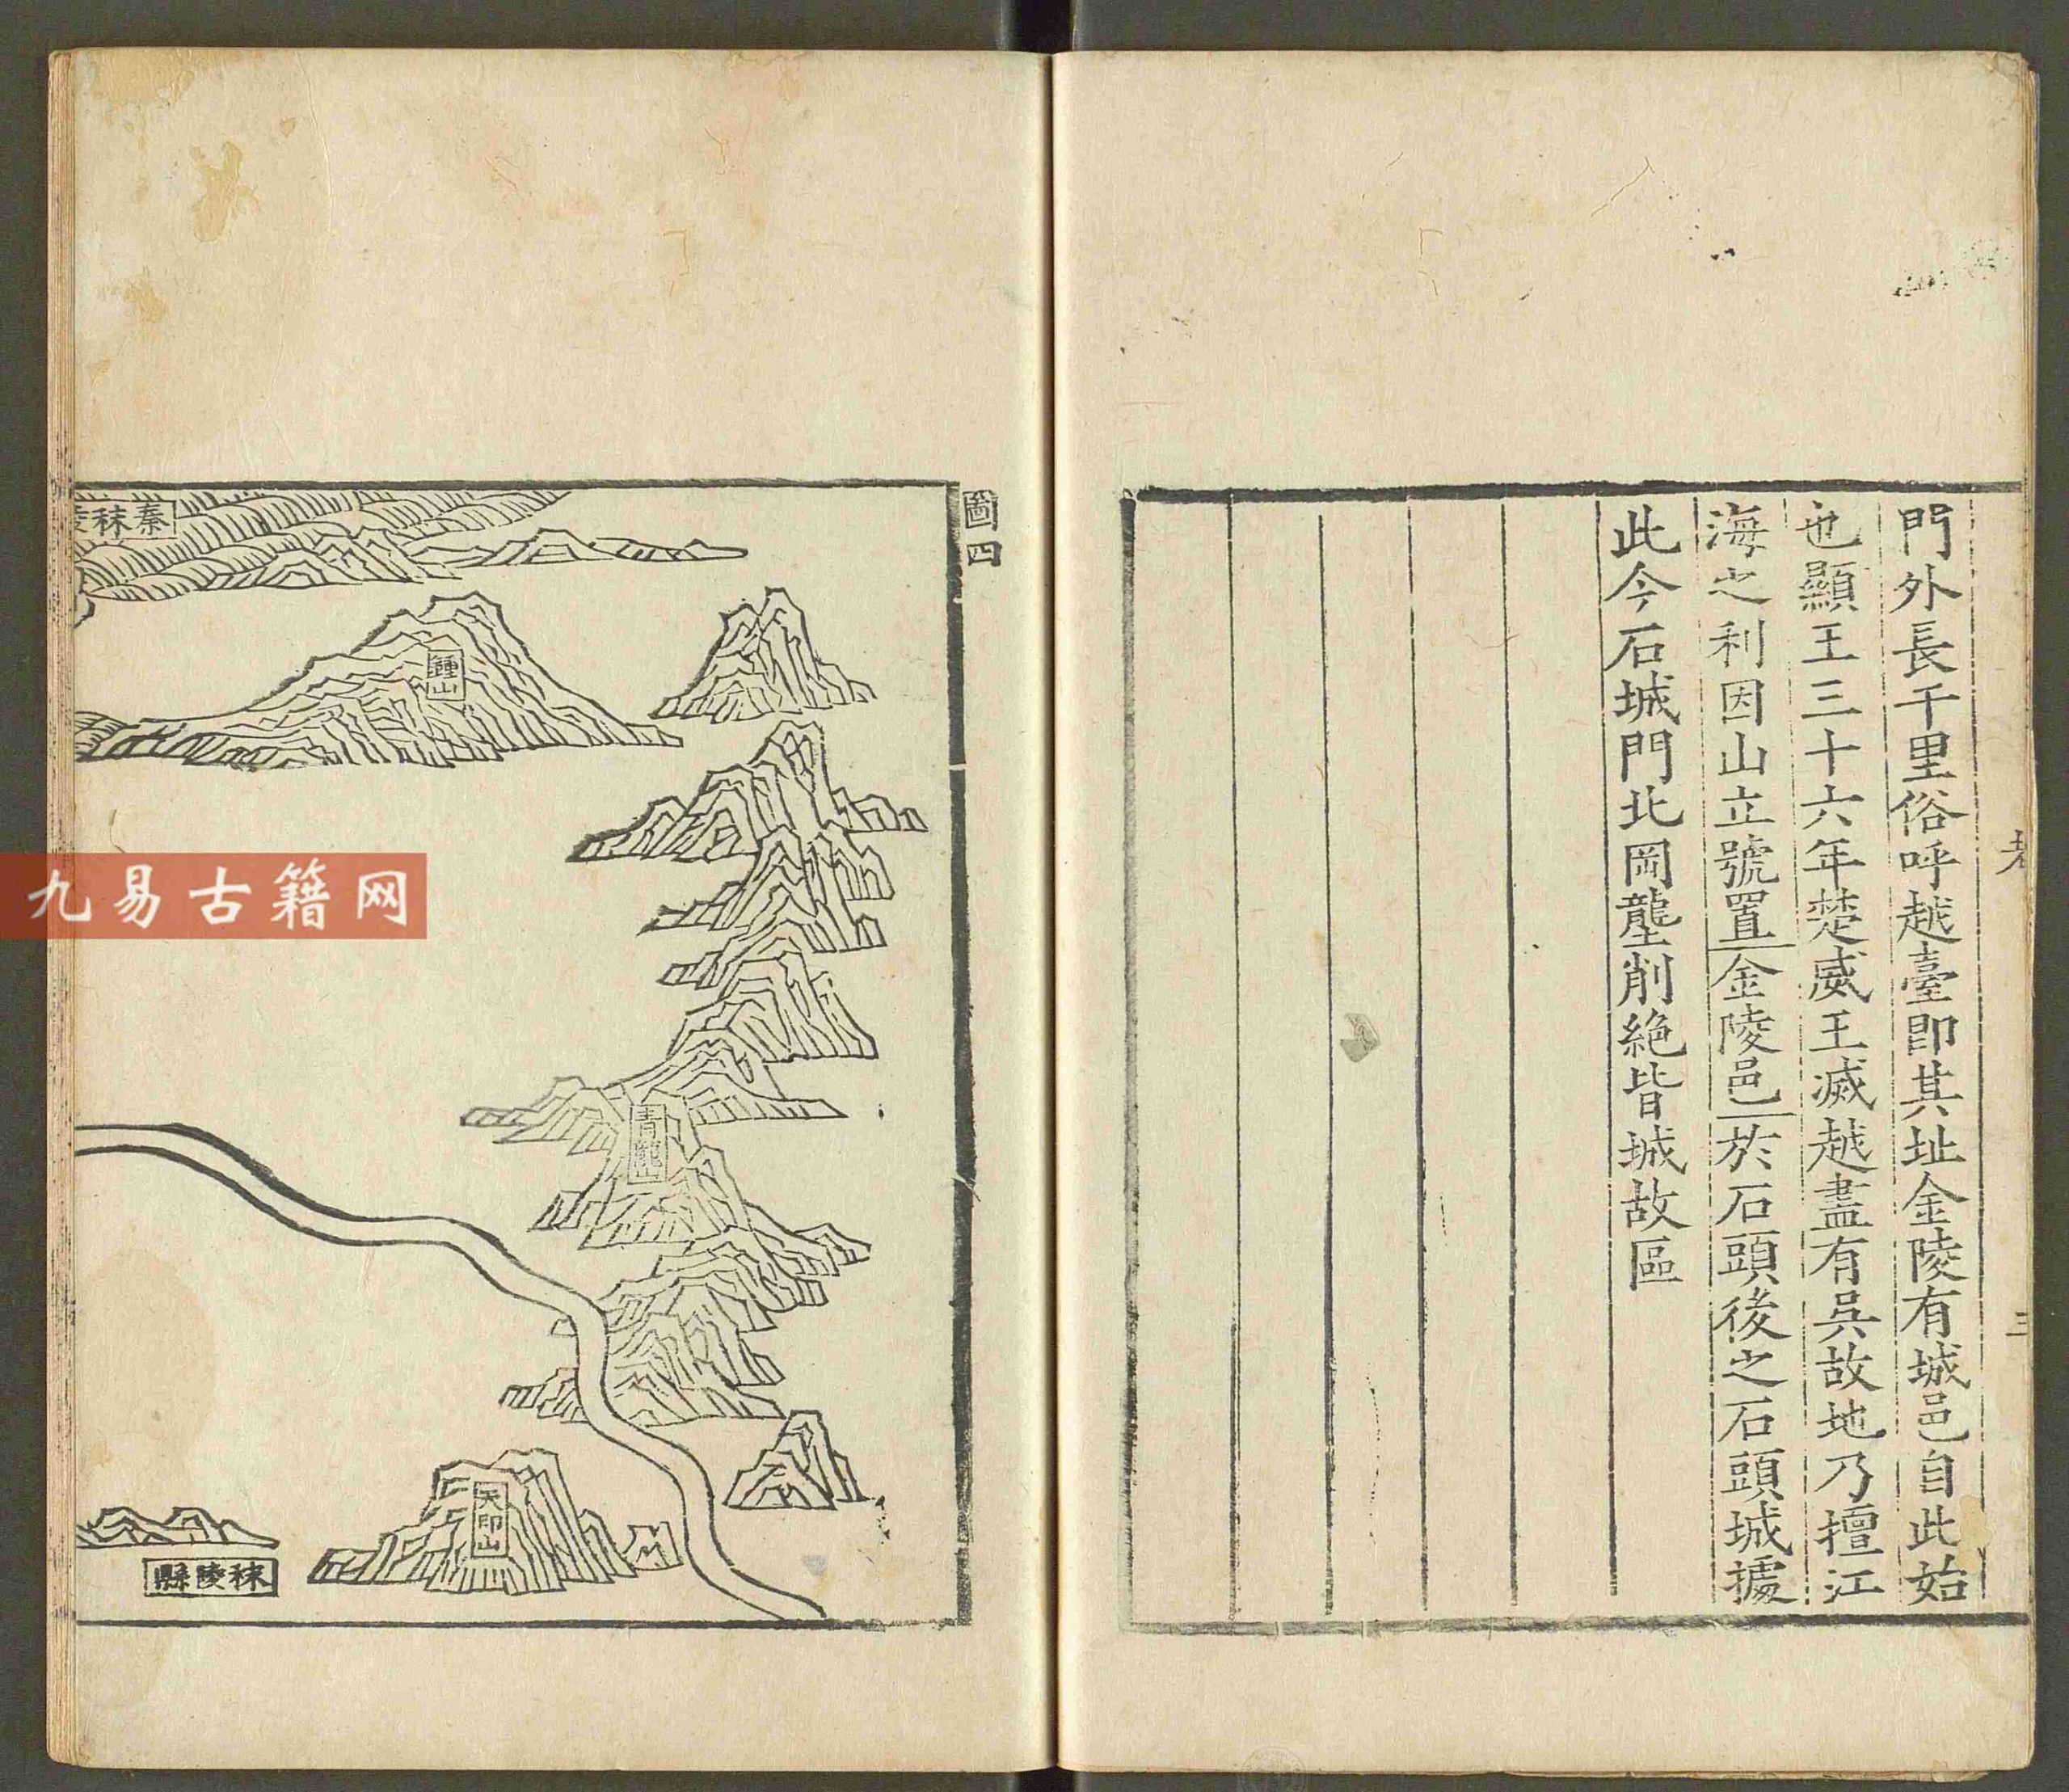 門外長干里俗呼越臺即其址金陵有城邑自此始
也顯王三十六年楚威王滅越盡有吳故地乃擅江
海之利因山立號置金陵邑於石頭後之石頭城據
此今石城門北岡壟削絶皆城故區
三
圖四
秦秣
鍾山
青龍山
天印山
秣陵縣
九易古籍网